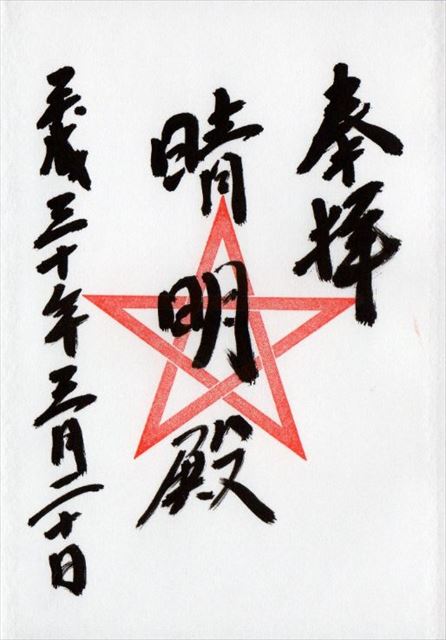 奉拝
晴明殿
平成三十年三月二十日